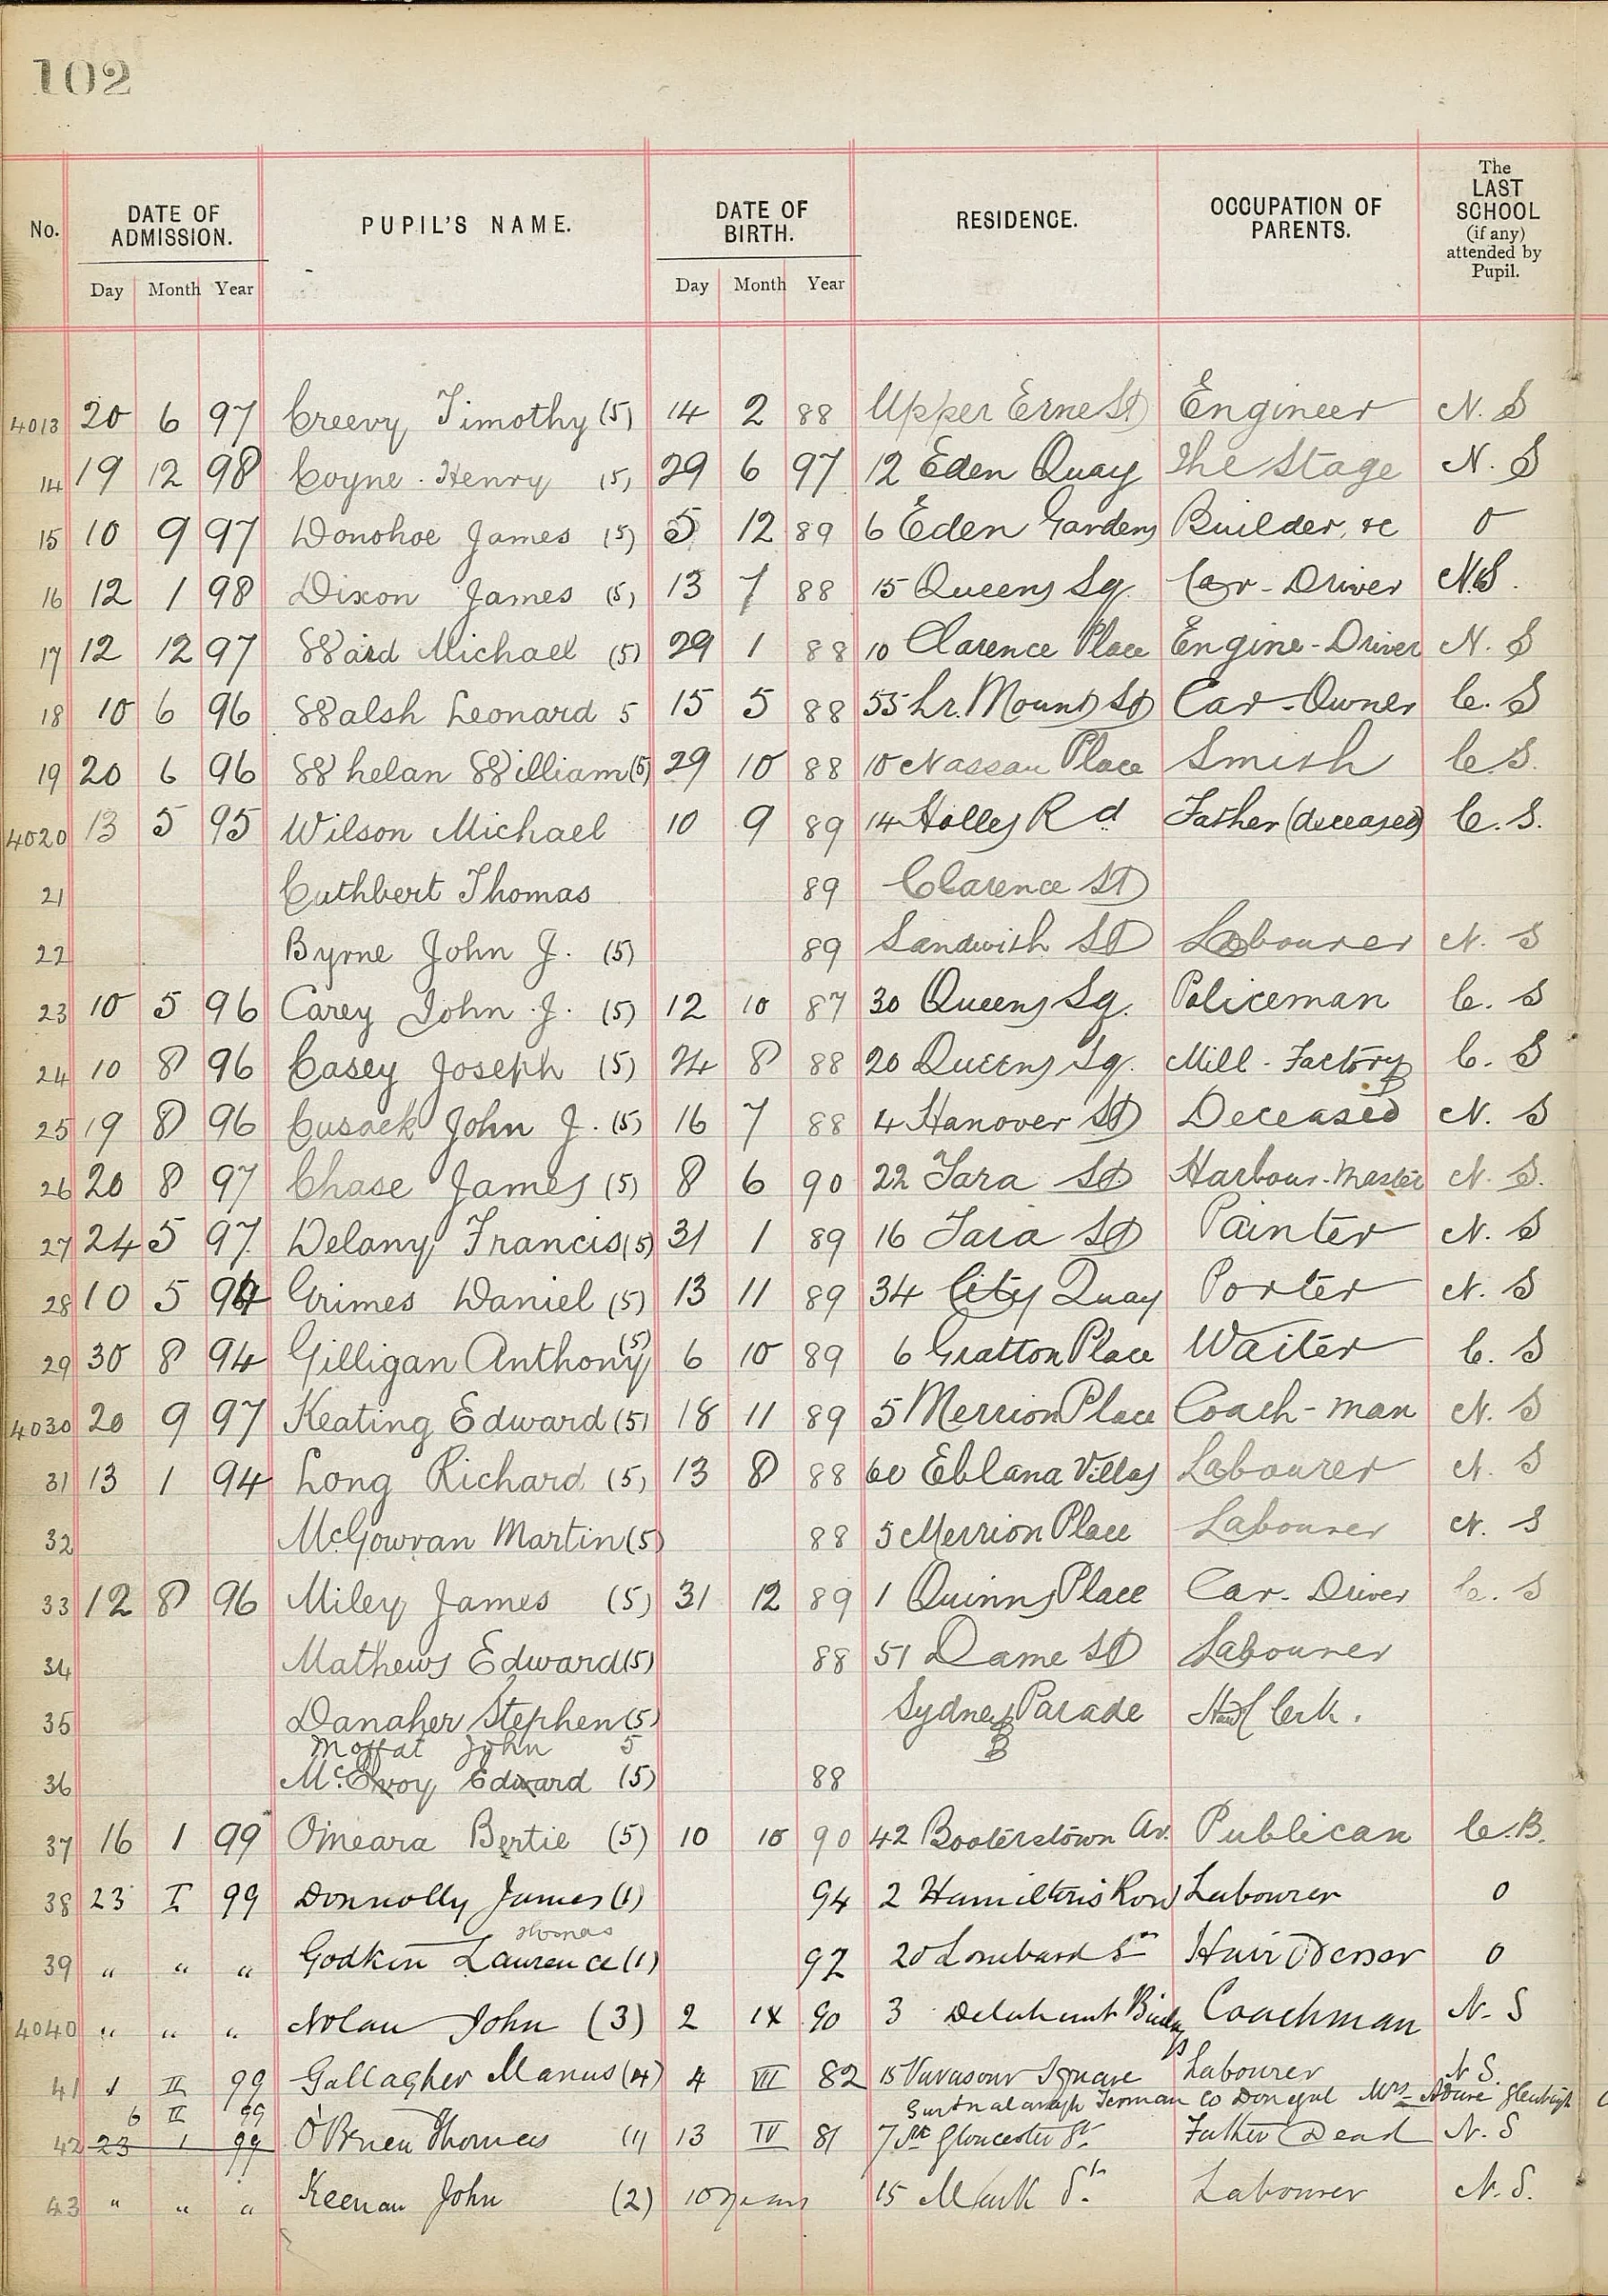 102
No. DATE OF ADMISSION. PUPIL'S NAME. DATE OF BIRTH. RESIDENCE. OCCUPATION OF PARENTS. The LAST SCHOOL (if any) attended by Pupil.
Day Month Year Day Month Year
4013 20 6 97 Creevy Timothy (5) 14 2 88 Upper Erne St Engineer N. S
14 19 12 98 Coyne Henry (5) 29 6 97 12 Eden Quay The Stage N. S
15 10 9 97 Donohoe James (5) 5 12 89 6 Eden Gardens Builder, &c 0
16 12 1 98 Dixon James (5) 13 7 88 15 Queens Sq. Car-Driver N.S.
17 12 12 97 Ward Michael (5) 29 1 88 10 Clarence Place Engine-Driver N. S
18 10 6 96 Walsh Leonard 5 15 5 88 55 Lr. Mount St Car-Owner C. S
19 20 6 96 Whelan William (5) 29 10 88 10 Nassau Place Smith C.S.
4020 13 5 95 Wilson Michael 10 9 89 14 Holles Rd Father (deceased) C. S.
21 Cuthbert Thomas 89 Clarence St
22 Byrne John J. (5) 89 Sandwith St Labourer N. S
23 10 5 96 Carey John J. (5) 12 10 87 30 Queens Sq. Policeman C. S
24 10 8 96 Casey Joseph (5) 24 8 88 20 Queens Sq. Mill-Factory C. S
25 19 8 96 Cusack John J. (5) 16 7 88 4 Hanover St Deceased N. S
26 20 8 97 Chase James (5) 8 6 90 22 Tara St Harbour-Master N. S.
27 24 5 97 Delany Francis (5) 31 1 89 16 Tara St Painter N. S
28 10 5 94 Grimes Daniel (5) 13 11 89 34 City Quay Porter N. S
29 30 8 94 Gilligan Anthony (5) 6 10 89 6 Gratton Place Waiter C. S
4030 20 9 97 Keating Edward (5) 18 11 89 5 Merrion Place Coach-man N. S
31 13 1 94 Long Richard (5) 13 8 88 60 Eblana Villas Labourer N. S
32 McGowran Martin (5) 88 5 Merrion Place Labourer N. S
33 12 8 96 Miley James (5) 31 12 89 1 Quinns Place Car-Driver C. S
34 Mathews Edward (5) 88 51 Dame St Labourer
35 Danaher Stephen (5) Sydney Parade Clerk.
Moffat John 5
36 McEvoy Edward (5) 88
37 16 1 99 O'meara Bertie (5) 10 10 90 42 Booterstown Av. Publican C.B.
38 23 I 99 Donnolly James (1) 94 2 Hamilton's Row Labourer 0
Thomas
39 " " " Godkin Laurence (1) 92 20 Lombard St Hair Dresser 0
4040 " " " Nolan John (3) 2 IX 90 3 Delahunt Bldgs Coachman N. S
41 1 II 99 Gallagher Manus (4) 4 VII 82 15 Vavasour Square Labourer N S.
6 II 99 Termon Co Donegal Mrs
42 23 1 99 O'Brien Thomas (1) 13 IV 81 7 Gloucester St Father Dead N. S
43 " " " Keenan John (2) 10 years 15 Mark St. Labourer N. S.